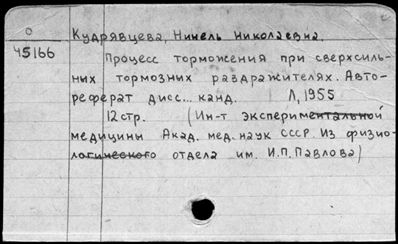 О
45166
Кудрявцева, Нинель Николаевна.
Процесс торможения при сверхсиль-
ных тормозных раздражителях. Авто-
реферат дисс... канд. Л, 1955
12 стр. (Ин-т экспериментальной
медицины Акад. мед. наук СССР. Из физио-
логического отдела им. И.П. Павлова)